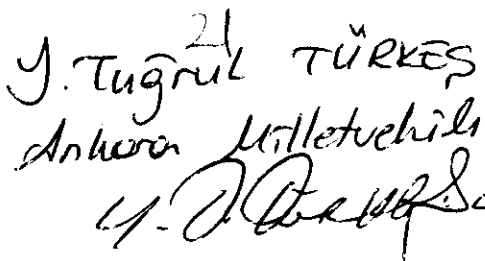 21
Y. Tuğrul TÜRKEŞ
Ankara Milletvekili